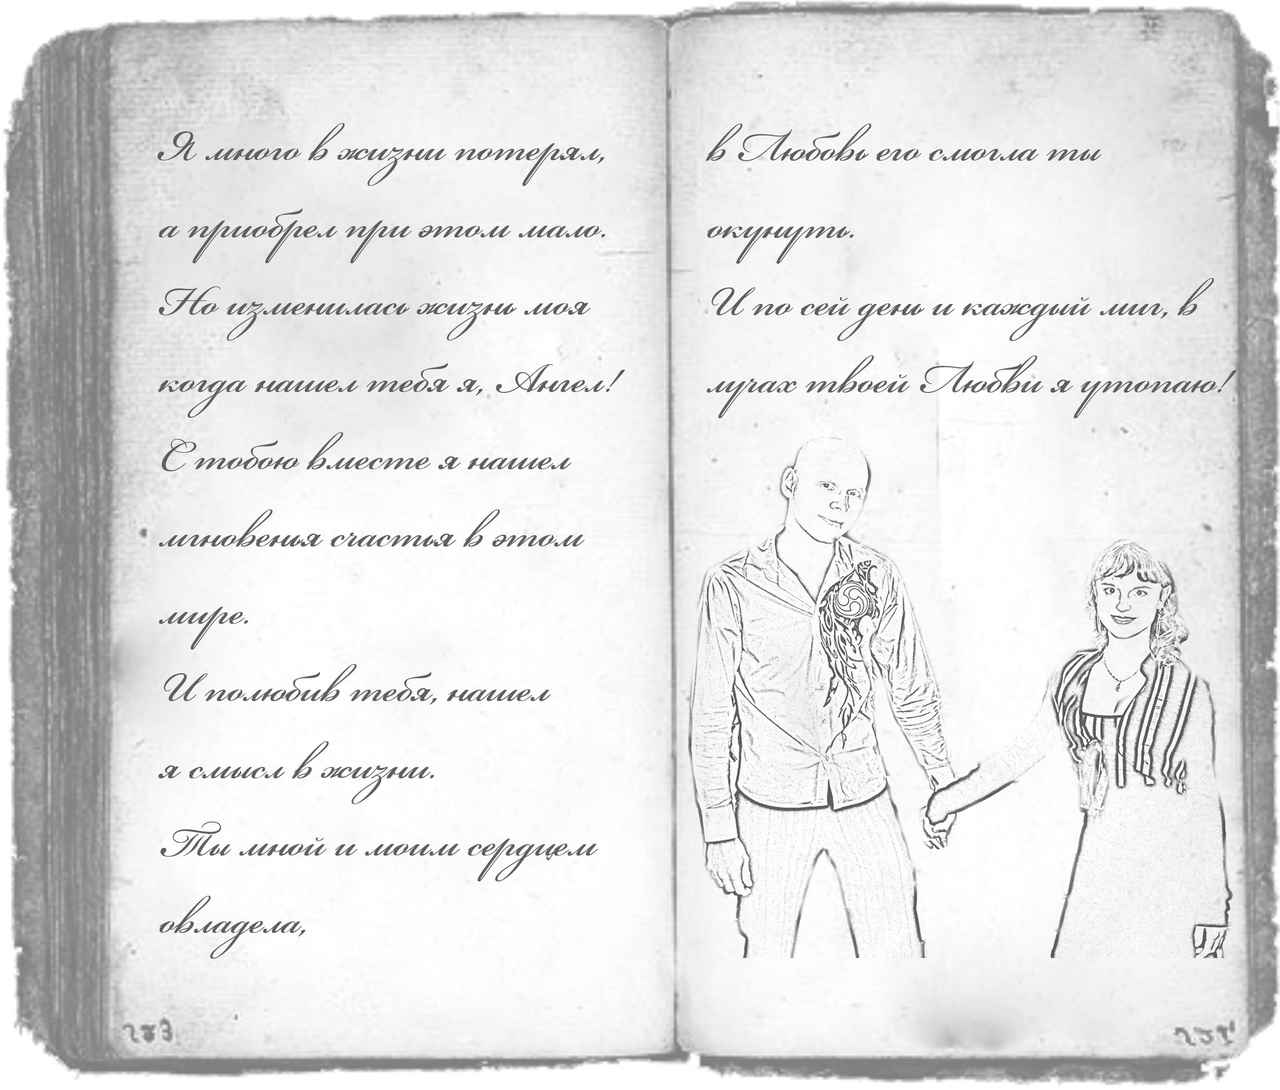 Я много в жизни потерял,
а приобрел при этом мало.
Но изменилась жизнь моя
когда нашел тебя я, Ангел!
С тобою вместе я нашел
мгновенья счастья в этом
мире.
И полюбив тебя, нашел
я смысл в жизни.
Ты мной и моим сердцем
овладела,
в Любовь его смогла ты
окунуть.
И по сей день и каждый миг, в
лучах твоей Любви я утопаю!